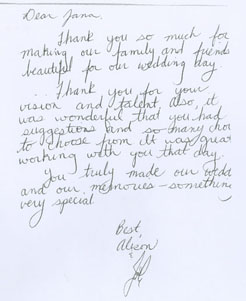 Dear Jana,
Thank you so much for
making our family and friends
beautiful for our wedding day
... Thank you for your
vision and talent, also, it
was wonderful that you had
suggestions and so many
to choose from. It was great
working with you that day.
You truly made our
and our memories - something
very special
Best,
Alison
&